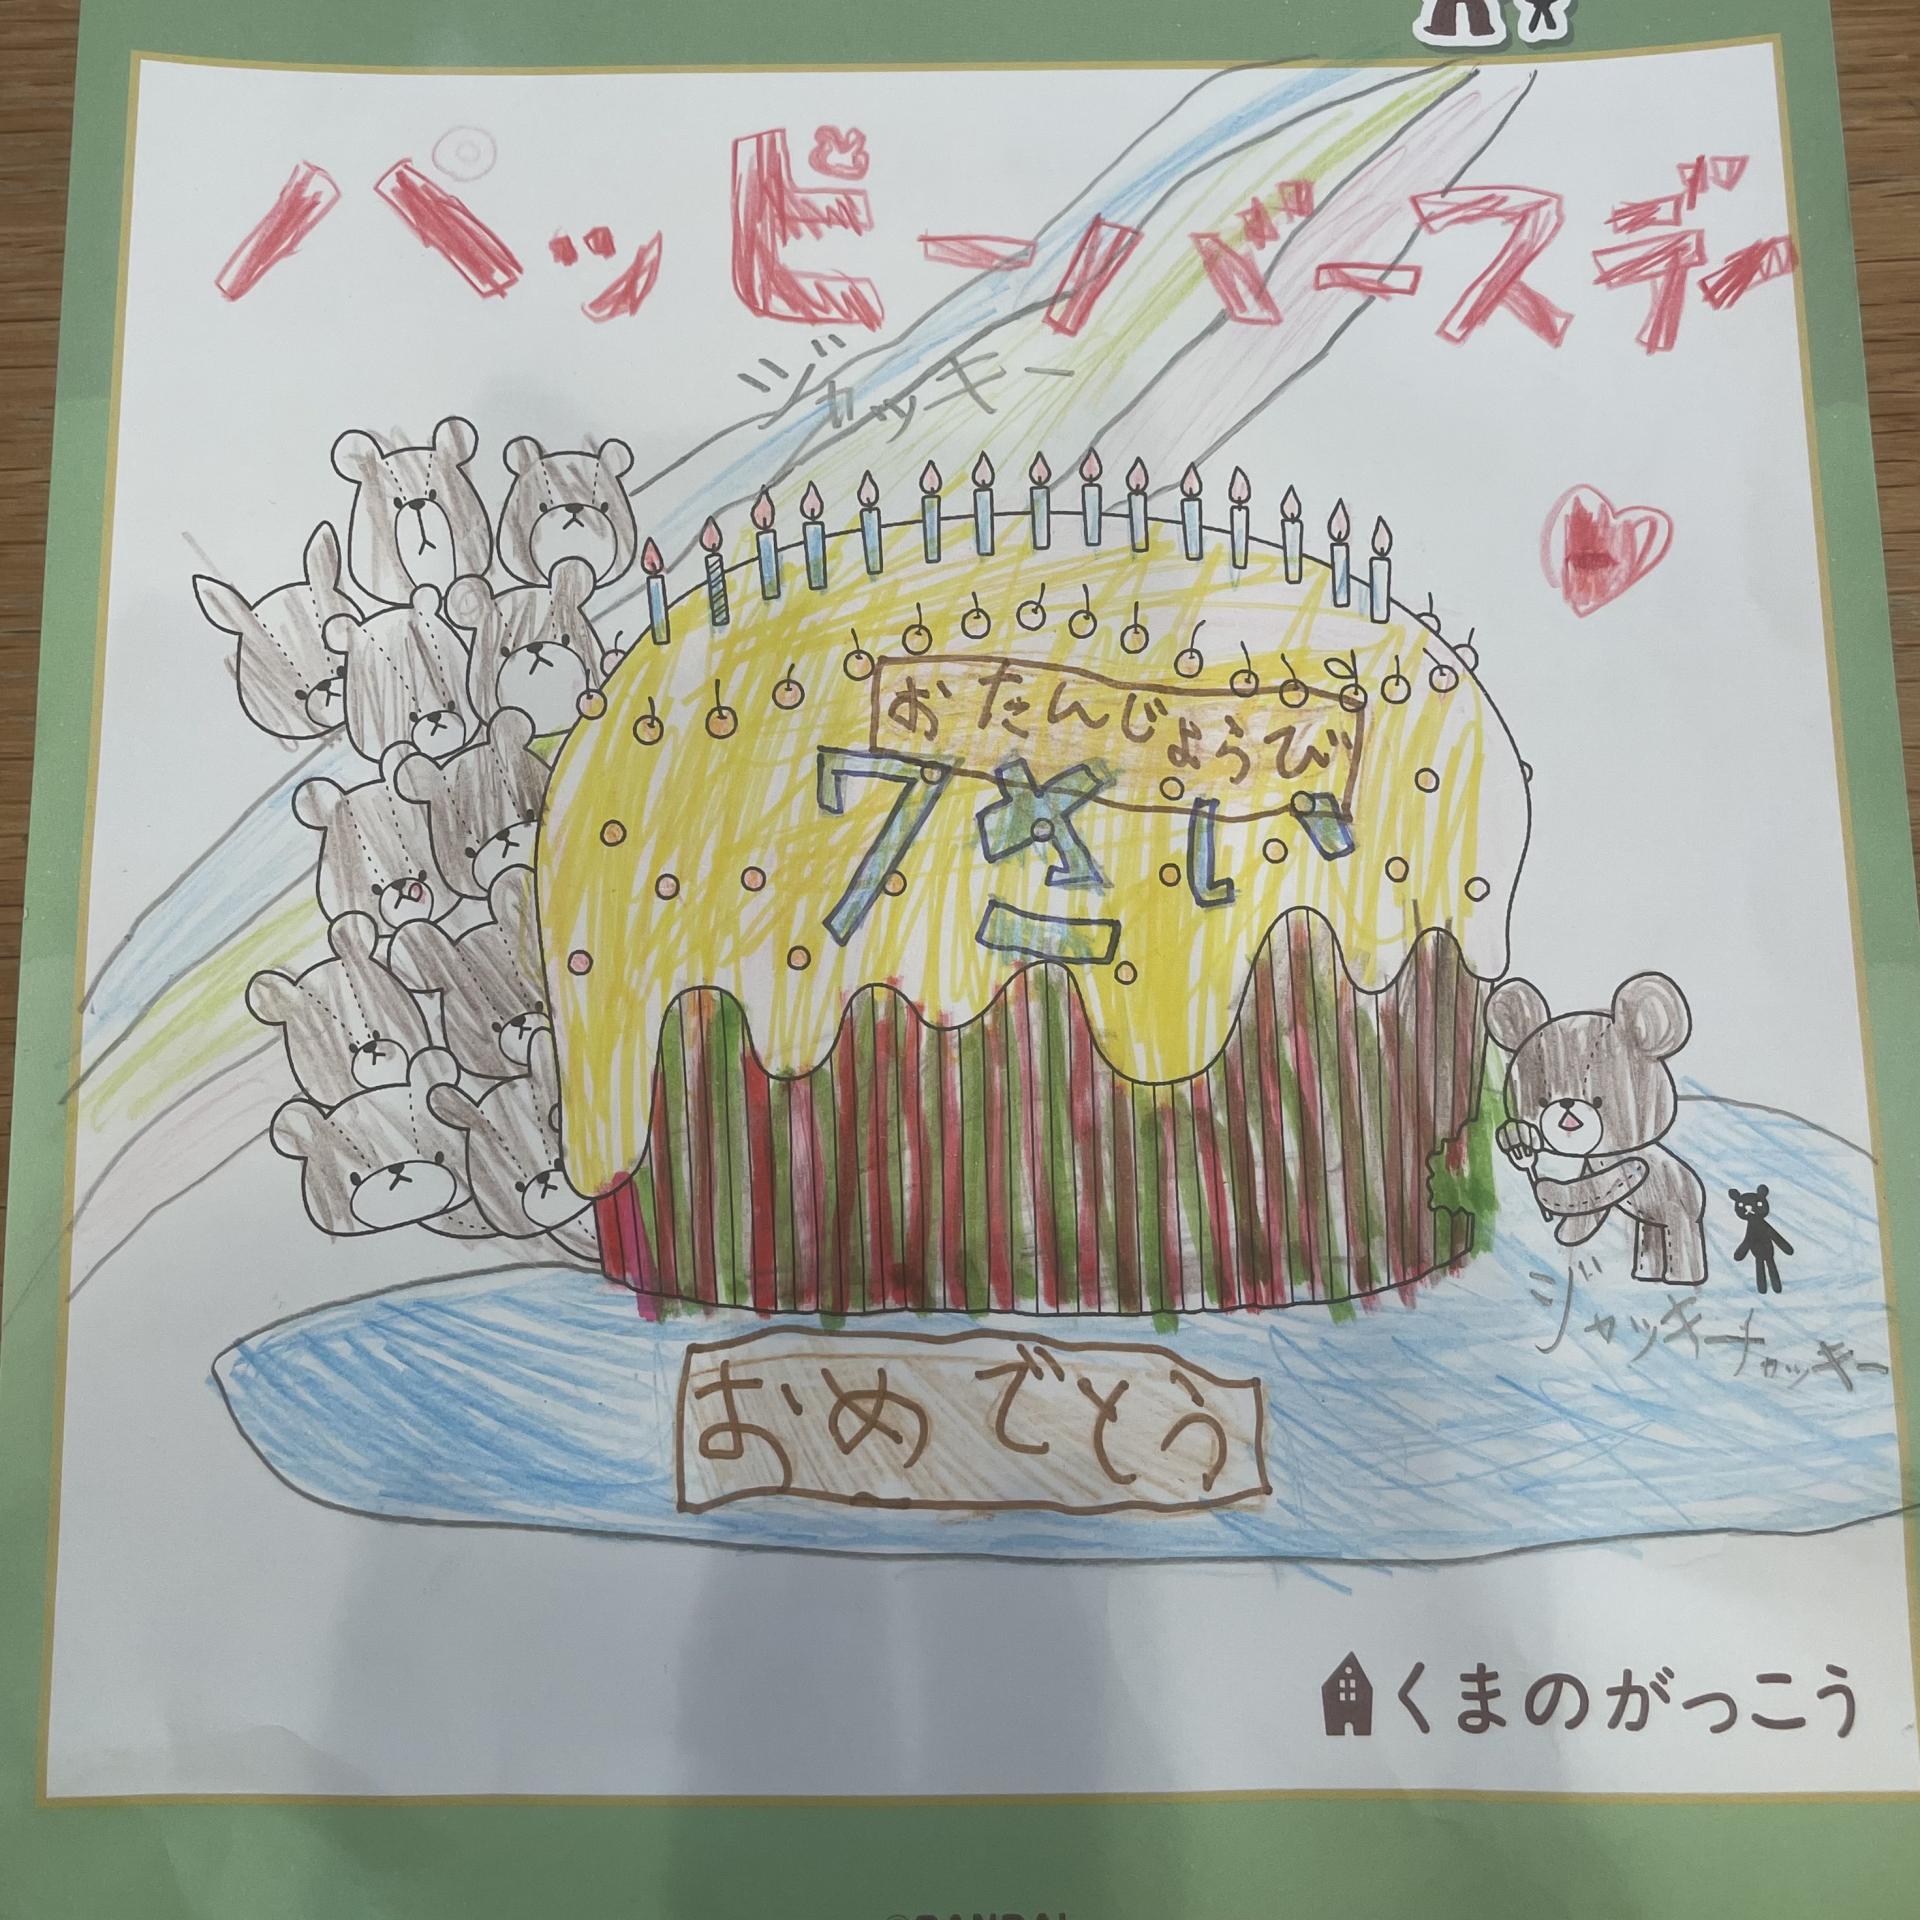 パッピーバースデー
ジャッキー
おたんじょうび
7さい
ジャッキーチャッキー
おめでとう
くまのがっこう